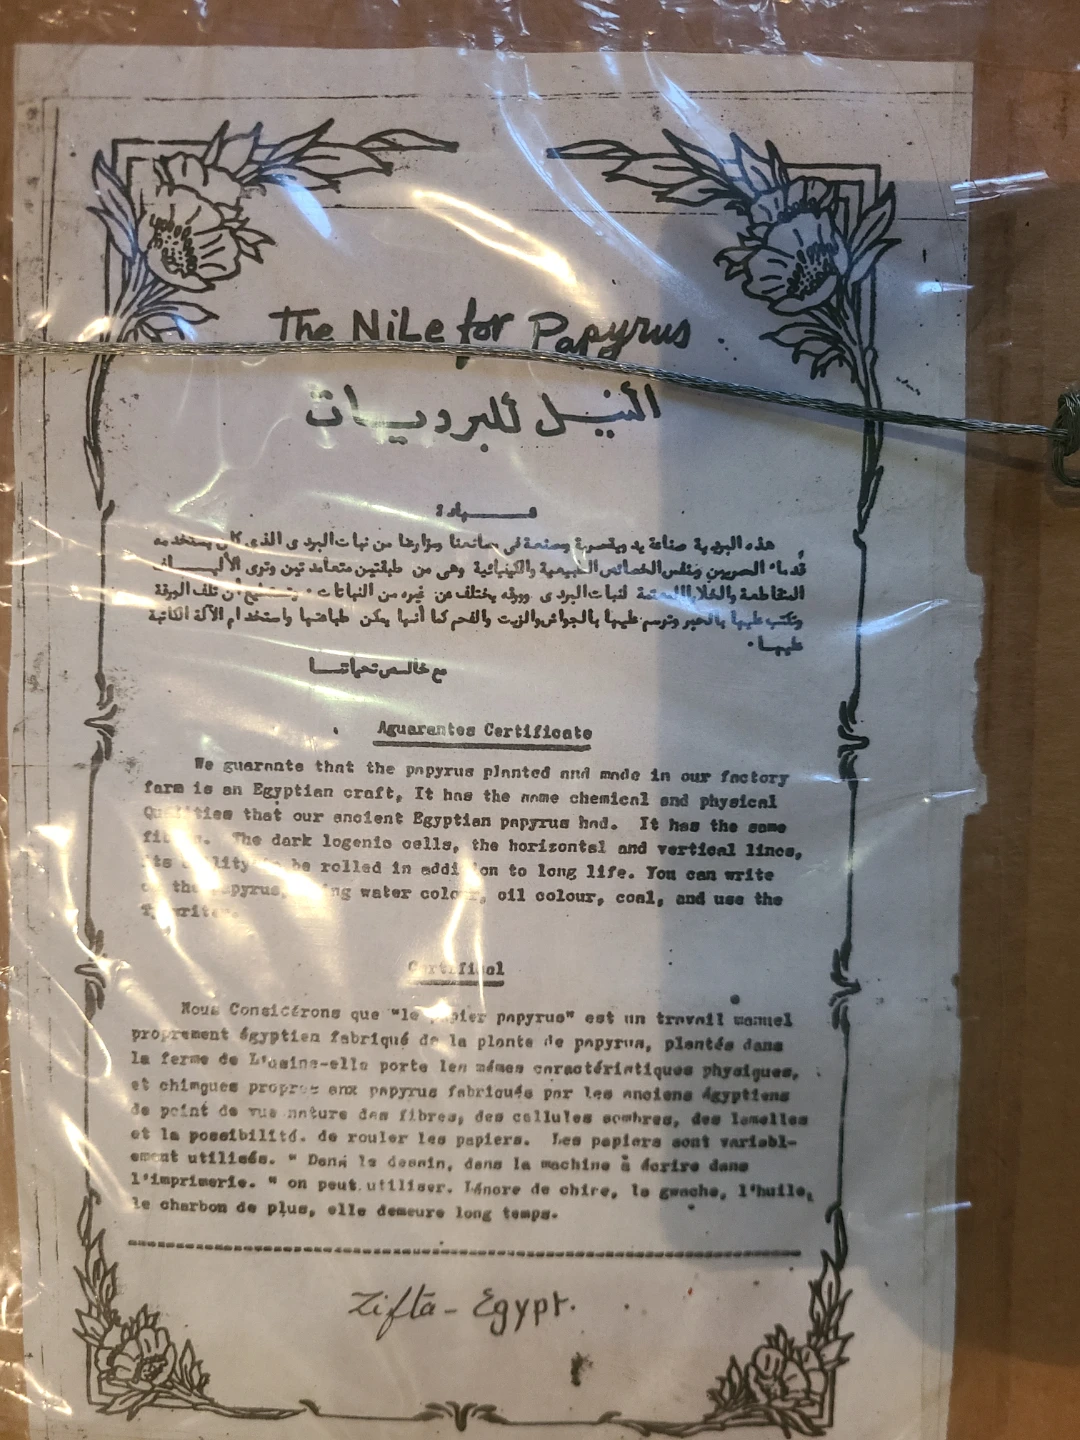 The NiLe for Papyrus
النيل للبرديات
شهادة
هذه البردية صناعة يدويةمصرية ومصنعة فى مصانعنا ومزارعنا من نباتالبردى الذى كان يستخدمه
قدماء المصريين ونفس الخصائص الطبيعية والكيميائية وهى من طبقتين متعامدتين وترى الأليــاف
المتقاطعة والخلايا لنباتالبردى وورقه يختلف عن غيره من النباتات تلف الورقة
وتكتب عليها بالحبر وترسم عليها بالجواش والزيت والفحم كما أنها يمكن طباعتها واستخدام الآلة الكاتبة
عليهــا .
مع خالـص تحياتنــا
Aguarantes Certificate
We guarante that the papyrus planted and made in our factory
farm is an Egyptian craft, It has the name chemical and physical
Qualities that our ancient Egyptian papyrus had. It has the same
The dark logenic cells, the horizontal and vertical lines,
be rolled in addition to long life. You can write
the papyrus, water colour, oil colour, coal, and use the
Certifical
Nous Considérons que "le papier papyrus" est un travail manuel
proprement égyptien fabriqué de la plante de papyrus, plantés dans
la ferme de L'usine-elle porte les mémes caractéristiques physiques,
et chimques propres aux papyrus fabriqués par les anciens égyptiens
de point de vue nature des fibres, des cellules sombres, des lamelles
et la possibilité. de rouler les papiers. Les papiers sont variabl-
ement utilisés. " Dans le dessin, dans la machine à écrire dans
l'imprimerie. " on peut utiliser. Lénore de chire, la gwache, l'huile,
le charbon de plus, elle demeure long temps.
Zifta - Egypt.